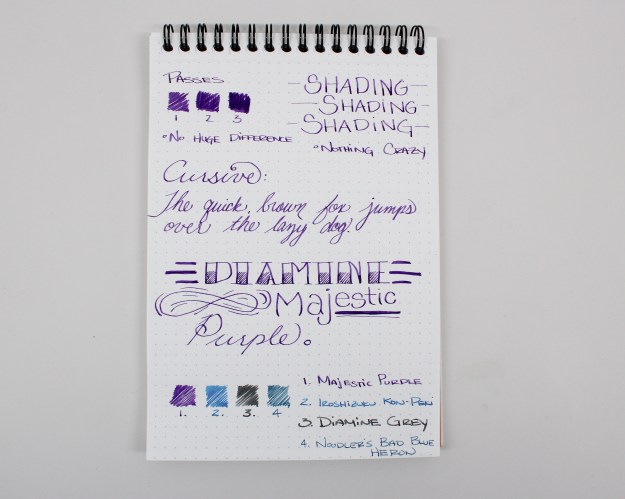 PASSES
1 2 3
•NO HUGE DIFFERENCE
SHADING
SHADING
SHADING
•NOTHING CRAZY
Cursive:
The quick, brown fox jumps
over the lazy dog.
DIAMINE
Majestic
Purple.
1. 2. 3. 4
1. MAJESTIC PURPLE
2. IROSHIZUKU KON-PEKI
3. DIAMINE GREY
4. NOODLER'S BAD BLUE
HERON